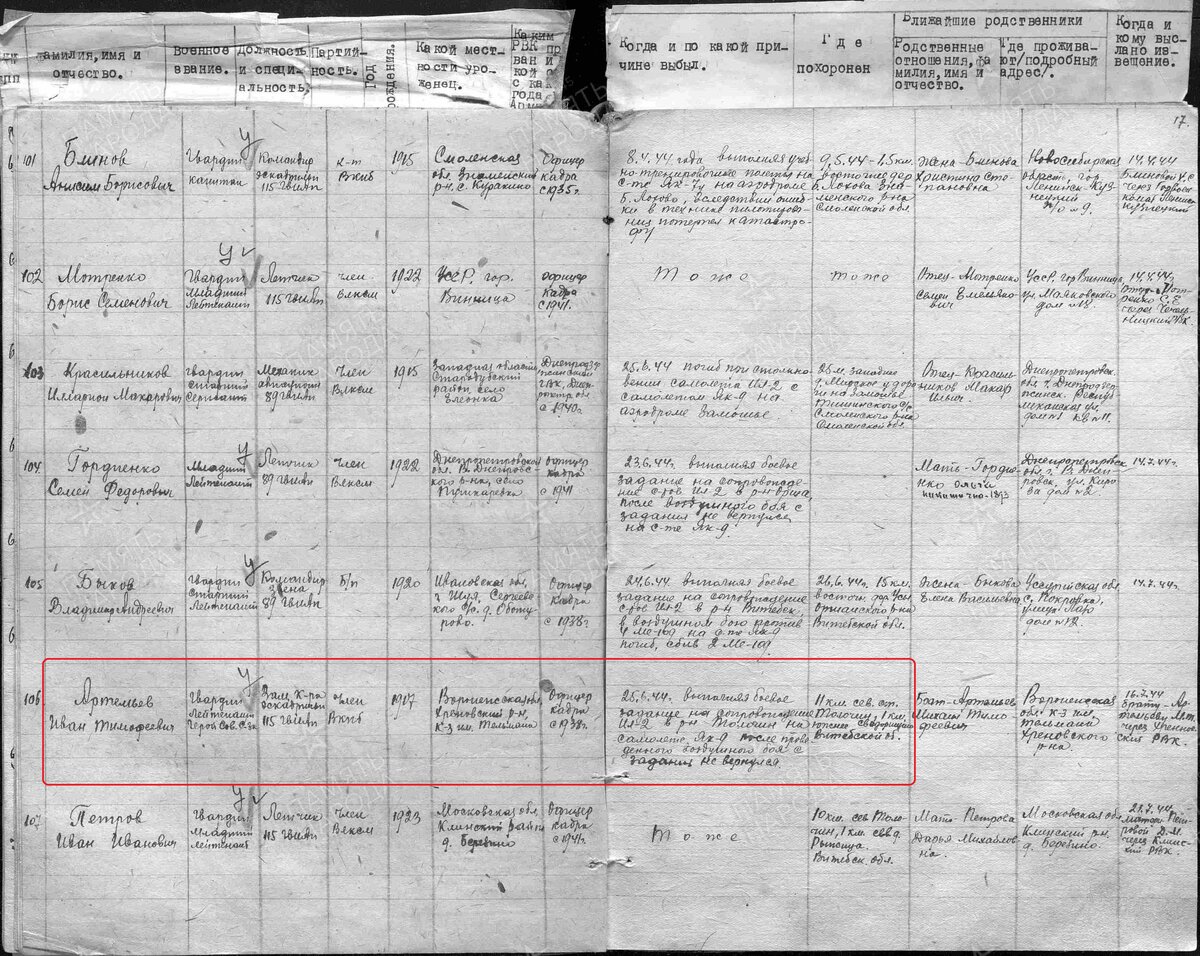 Фамилия, имя и отчество.
Военное звание.
Должность и специальность.
Партийность.
Год рождения.
Какой местности уроженец.
Каким РВК призван и с какого года
Когда и по какой причине выбыл.
Где похоронен
Ближайшие родственники
Родственные отношения, фамилия, имя и отчество.
Где проживают/подробный адрес/.
Когда и кому выслано извещение.
17.
101
Блинов
Анисим Борисович
Гвардии
капитан
Командир
эскадрильи
115 Гвиап
к-т
Вкпб
1915
Смоленская
обл. Знаменский
р-н, с. Куракино
Офицер
кадра
с 1935г.
8.4.44 года выполняя учеб
но-тренировочные полеты на
с-те Як-7у на аэродроме
Б. Лохово, вследствии ошиб-
ки в технике пилотирова-
ния потерпел катастро-
фу
9.5.44-1.5 км.
Б. Лохова Зна-
менского р-на
Смоленской обл.
Жена-Блинова
Христина Сте-
пановна
Новосибирска
область, гор.
Ленинск-Куз-
нецкий
14.4.44
Блиновой Х.С
102
Мотренко
Борис Семенович
Гвардии
Младший
Лейтенант
Летчик
115 Гвиап
Член
Влксм
1922
УССР, гор.
Винница
Офицер
кадра
с 1941.
Тоже
тоже
Отец-Мотренко
Семен Емельяно-
вич
Усср, гор Винница,
ул. Маяковского
дом №18.
14.4.44г.
103
Красильников
Илларион Макарович
Гвардии
Старший
Сержант
Механик
авиационн
89 Гвиап
Член
Влксм
1915
Западная область
Стародубский
район, село
Елеонка
с 1940г.
25.6.44 погиб при столкно-
вении самолета Ил-2 с
самолетом Як-9 на
аэродроме Замошье.
Смоленского р-на
Смоленской обл.
Отец-Красиль-
ников Макар
Ильич.
Днепропетровск.
104
Гордиенко
Семен Федорович
Младший
Лейтенант
Летчик
89 Гвиап
Член
Влксм
1922
Днепропетровская
обл. В. Днепровс-
кого р-на, село
Пушкаревка
Офицер
кадра
с 1941
23.6.44г. выполняя боевое
задание на сопровожде-
ние с-тов Ил-2 в р-н Орша,
после воздушного боя с
задания не вернулся,
на с-те Як-9.
Мать-Гордие-
нко Ольга
Днепропетровск
обл. г. В. Днеп-
ровск, ул. Киро
ва дом №2.
14.7.44г.
105
Быков
Владимир Андреевич
Гвардии
Старший
Лейтенант
Командир
звена
89 Гвиап
Б/п
1920
Ивановская обл,
г. Шуя, Сергеевс-
кого с/с.
Офицер
Кадра
с 1938г.
24.6.44. выполняя боевое
задание на сопровождение
с-тов Ил-2 в р-н Витебск,
в воздушном бою против
4 Ме-109 на с-те Як-9
погиб, сбив 2 Ме-109.
26.6.44г. 15 км.
Витебской обл.
Жена Быкова
Елена Васильевна
Уссурийская обл
с. Покровка,
дом №12.
14.7.44г.
106
Артемьев
Иван Тимофеевич
Гвардии
Лейтенант
Герой Сов. Союза
Зам. К-ра
эскадрильи
115 Гвиап
Член
Вкпб
1917
Воронежская обл,
Хреновский р-н,
к-з им. Тельмана
Офицер
кадра
с 1938г.
25.6.44. выполняя боевое
задание на сопровождение
Ил-2 в р-н Толочин на
самолете Як-9 после прове-
денного воздушного боя с
задания не вернулся.
11 км. сев. ст.
Толочин, 1 км.
Витебской об.
Брат-Артемьев
Михаил Тимо
феевич
Воронежская
обл. к-з им.
Тельмана
Хреновского
р-на.
16.7.44
Брату-Ар-
темьеву М.Т.
через Хренов-
ский РВК.
107
Петров
Иван Иванович
Гвардии
Младший
Лейтенант
Летчик
115 Гвиап
Член
Влксм
1923
Московская обл.
Клинский район
д. Березино
Офицер
кадра
с 1941г.
Тоже
10 км. сев Толо-
чин, 1 км. сев д.
Рыжица.
Витебск. обл.
Мать-Петрова
Дарья Михайлов-
на.
Московская обл
Клинский р-н.
д. Березино.
Матери Пет-
ровой Д.М.
через Клинс-
кий РВК.